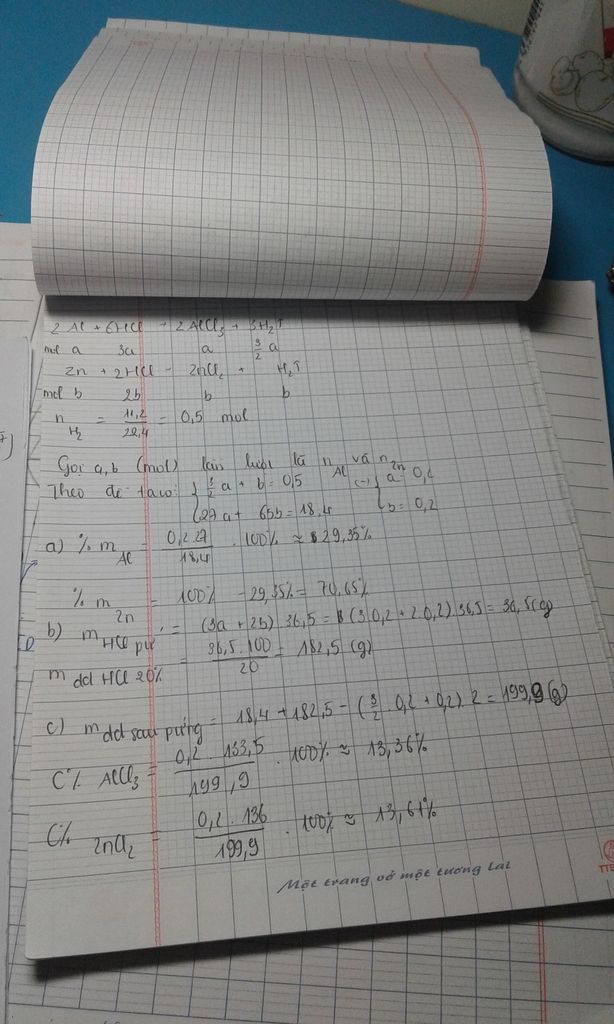 2Al + 6HCl → 2AlCl₃ + 3H₂↑
mol a 3a a 3/2 a
Zn + 2HCl → ZnCl₂ + H₂↑
mol b 2b b b
n H₂ = 11,2/22,4 = 0,5 mol
Gọi a, b (mol) lần lượt là n Al và n Zn
Theo đề ta có: { 3/2 a + b = 0,5 (=) { a = 0,2
{ 27a + 65b = 18,4 { b = 0,2
a) % m Al = 0,2.27/18,4 . 100% ≈ 29,35%
% m Zn = 100% - 29,35% = 70,65%
b) m HCl pư = (3a + 2b) . 36,5 = (3.0,2 + 2.0,2).36,5 = 36,5(g)
m dd HCl 20% = 36,5.100/20 = 182,5 (g)
c) m dd sau pứng = 18,4 + 182,5 - (3/2 . 0,2 + 0,2) . 2 = 199,9 (g)
C% AlCl₃ = 0,2 . 133,5/199,9 . 100% ≈ 13,36%
C% ZnCl₂ = 0,2 . 136/199,9 . 100% ≈ 13,61%
Một trang vở một tương lai